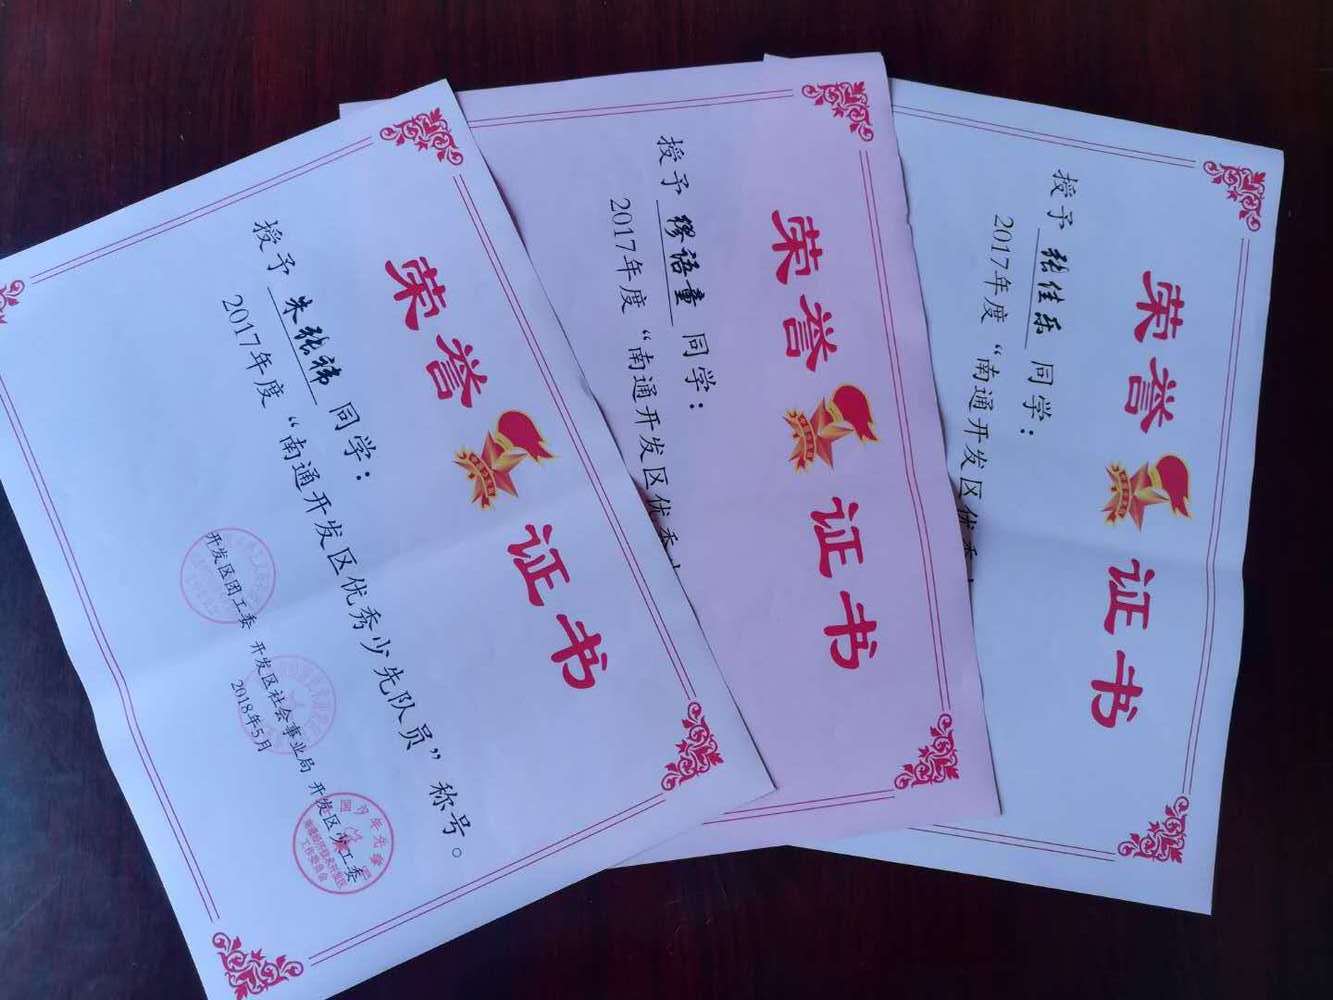 荣誉证书
授予 朱张祎 同学：
2017年度“南通开发区优秀少先队员”称号。
开发区团工委 开发区社会事业局 开发区少工委
2018年5月
荣誉证书
授予 缪语童 同学：
2017年度“南通开发区优秀
荣誉证书
授予 张佳乐 同学：
2017年度“南通开发区优秀